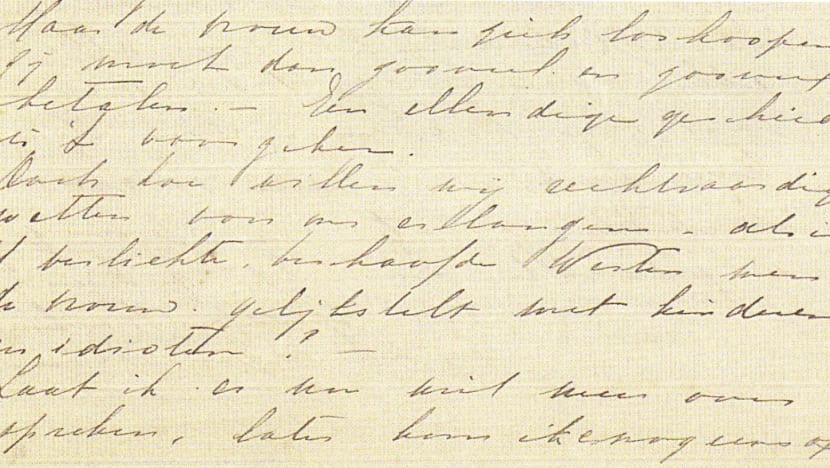 Maar de vrouw kan zich loskoopen
zij moet dan zooveel en zooveel
betalen. — Een ellendige geschied
is 't voor geber.
Doch hoe willen wij rechtvaardig
wetten voor ons erlangen – als i
't verlichte, beschaafde Westen men
de vrouw gelijkstelt met kinderen
en idioten? —
Laat ik er nu niet meer over
spreken, later kom ik er nog eens op